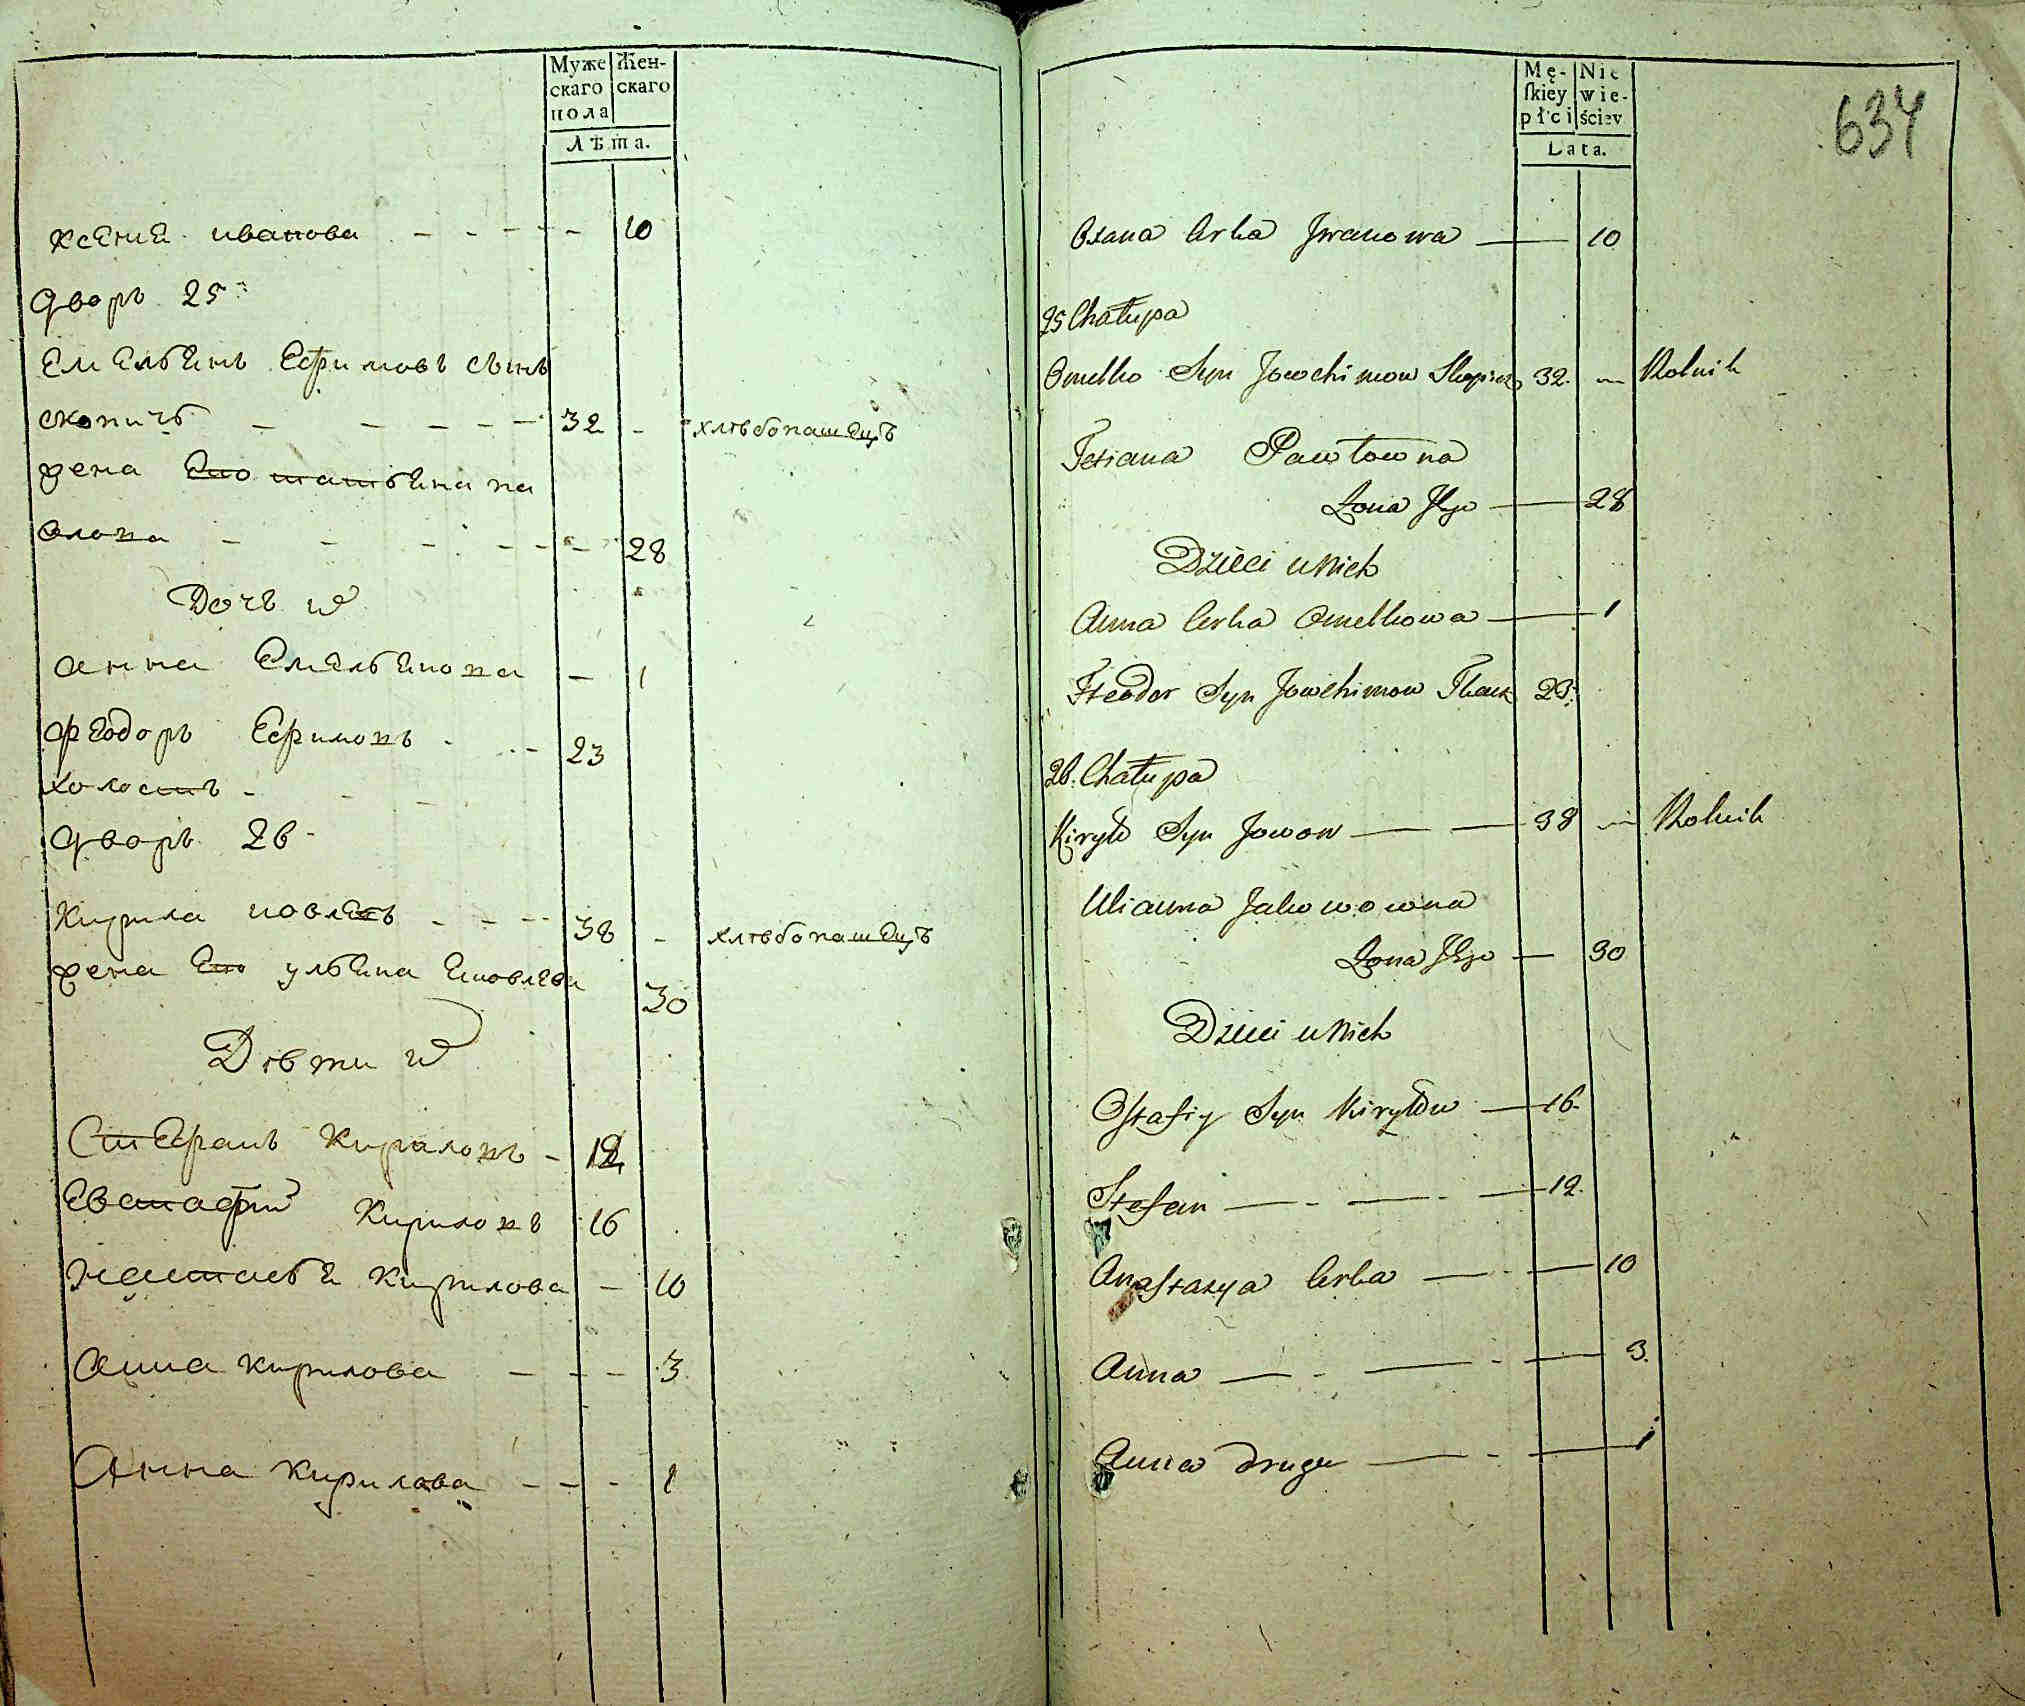 Муже
скаго
пола
Жен-
скаго
Лѣта.
ксения иванова - - - - - 10
дворъ 25
Емельянъ Ефимовъ сынъ
скопичъ - - - - - 32 - хлѣбопашецъ
жена Его татьяна па
влова - - - - - - 28
Дочь их
анна Емельянова - 1
федоръ Ефимовъ - - 23
холостъ - - -
дворъ 26
Кирила иовлевъ - - - 38 - хлѣбопашецъ
жена Его ульяна Яковлева 30
Дѣти их
Стефанъ Кириловъ - 12
Евстафий Кириловъ 16
настасья Кирилова - 10
анна кирилова - - - 3
Анна кирилова - - - 1
Mę-
skiey
płci
Nie
wie-
ściey
Lata.
634
Oxana Crka Jwanowa — 10
25 Chałupa
Omelko Syn Jowchimow 32. — Rolnik
Tatiana Pawłowna
Żona Jego — 28
Dzieci u Nich
Anna Crka Omelkowa — 1
Fteodor Syn Jowchimow 23.
26. Chałupa
Kiryło Syn Jowow — — 38 — Rolnik
Ulianna Jakowowna
Żona Jego — 30
Dzieci u Nich
Ostafiy Syn Kiryłow — 16.
Stefan — - — - — 12.
Anastazya Crka — - — 10
Anna — - — - — 3.
Anna druga — - — 1